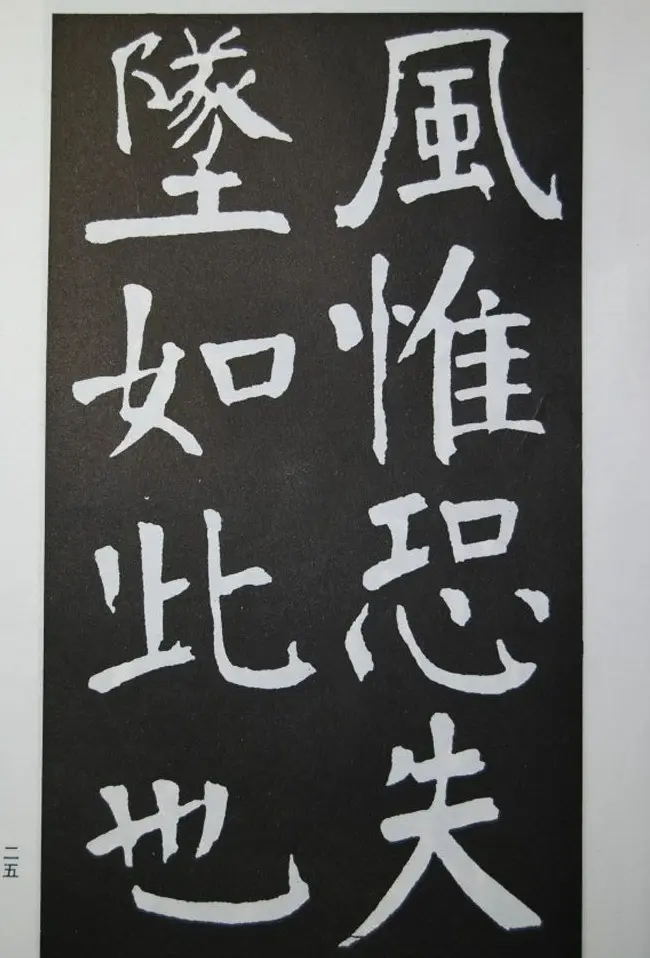 風惟恐失
墜如此也
二五